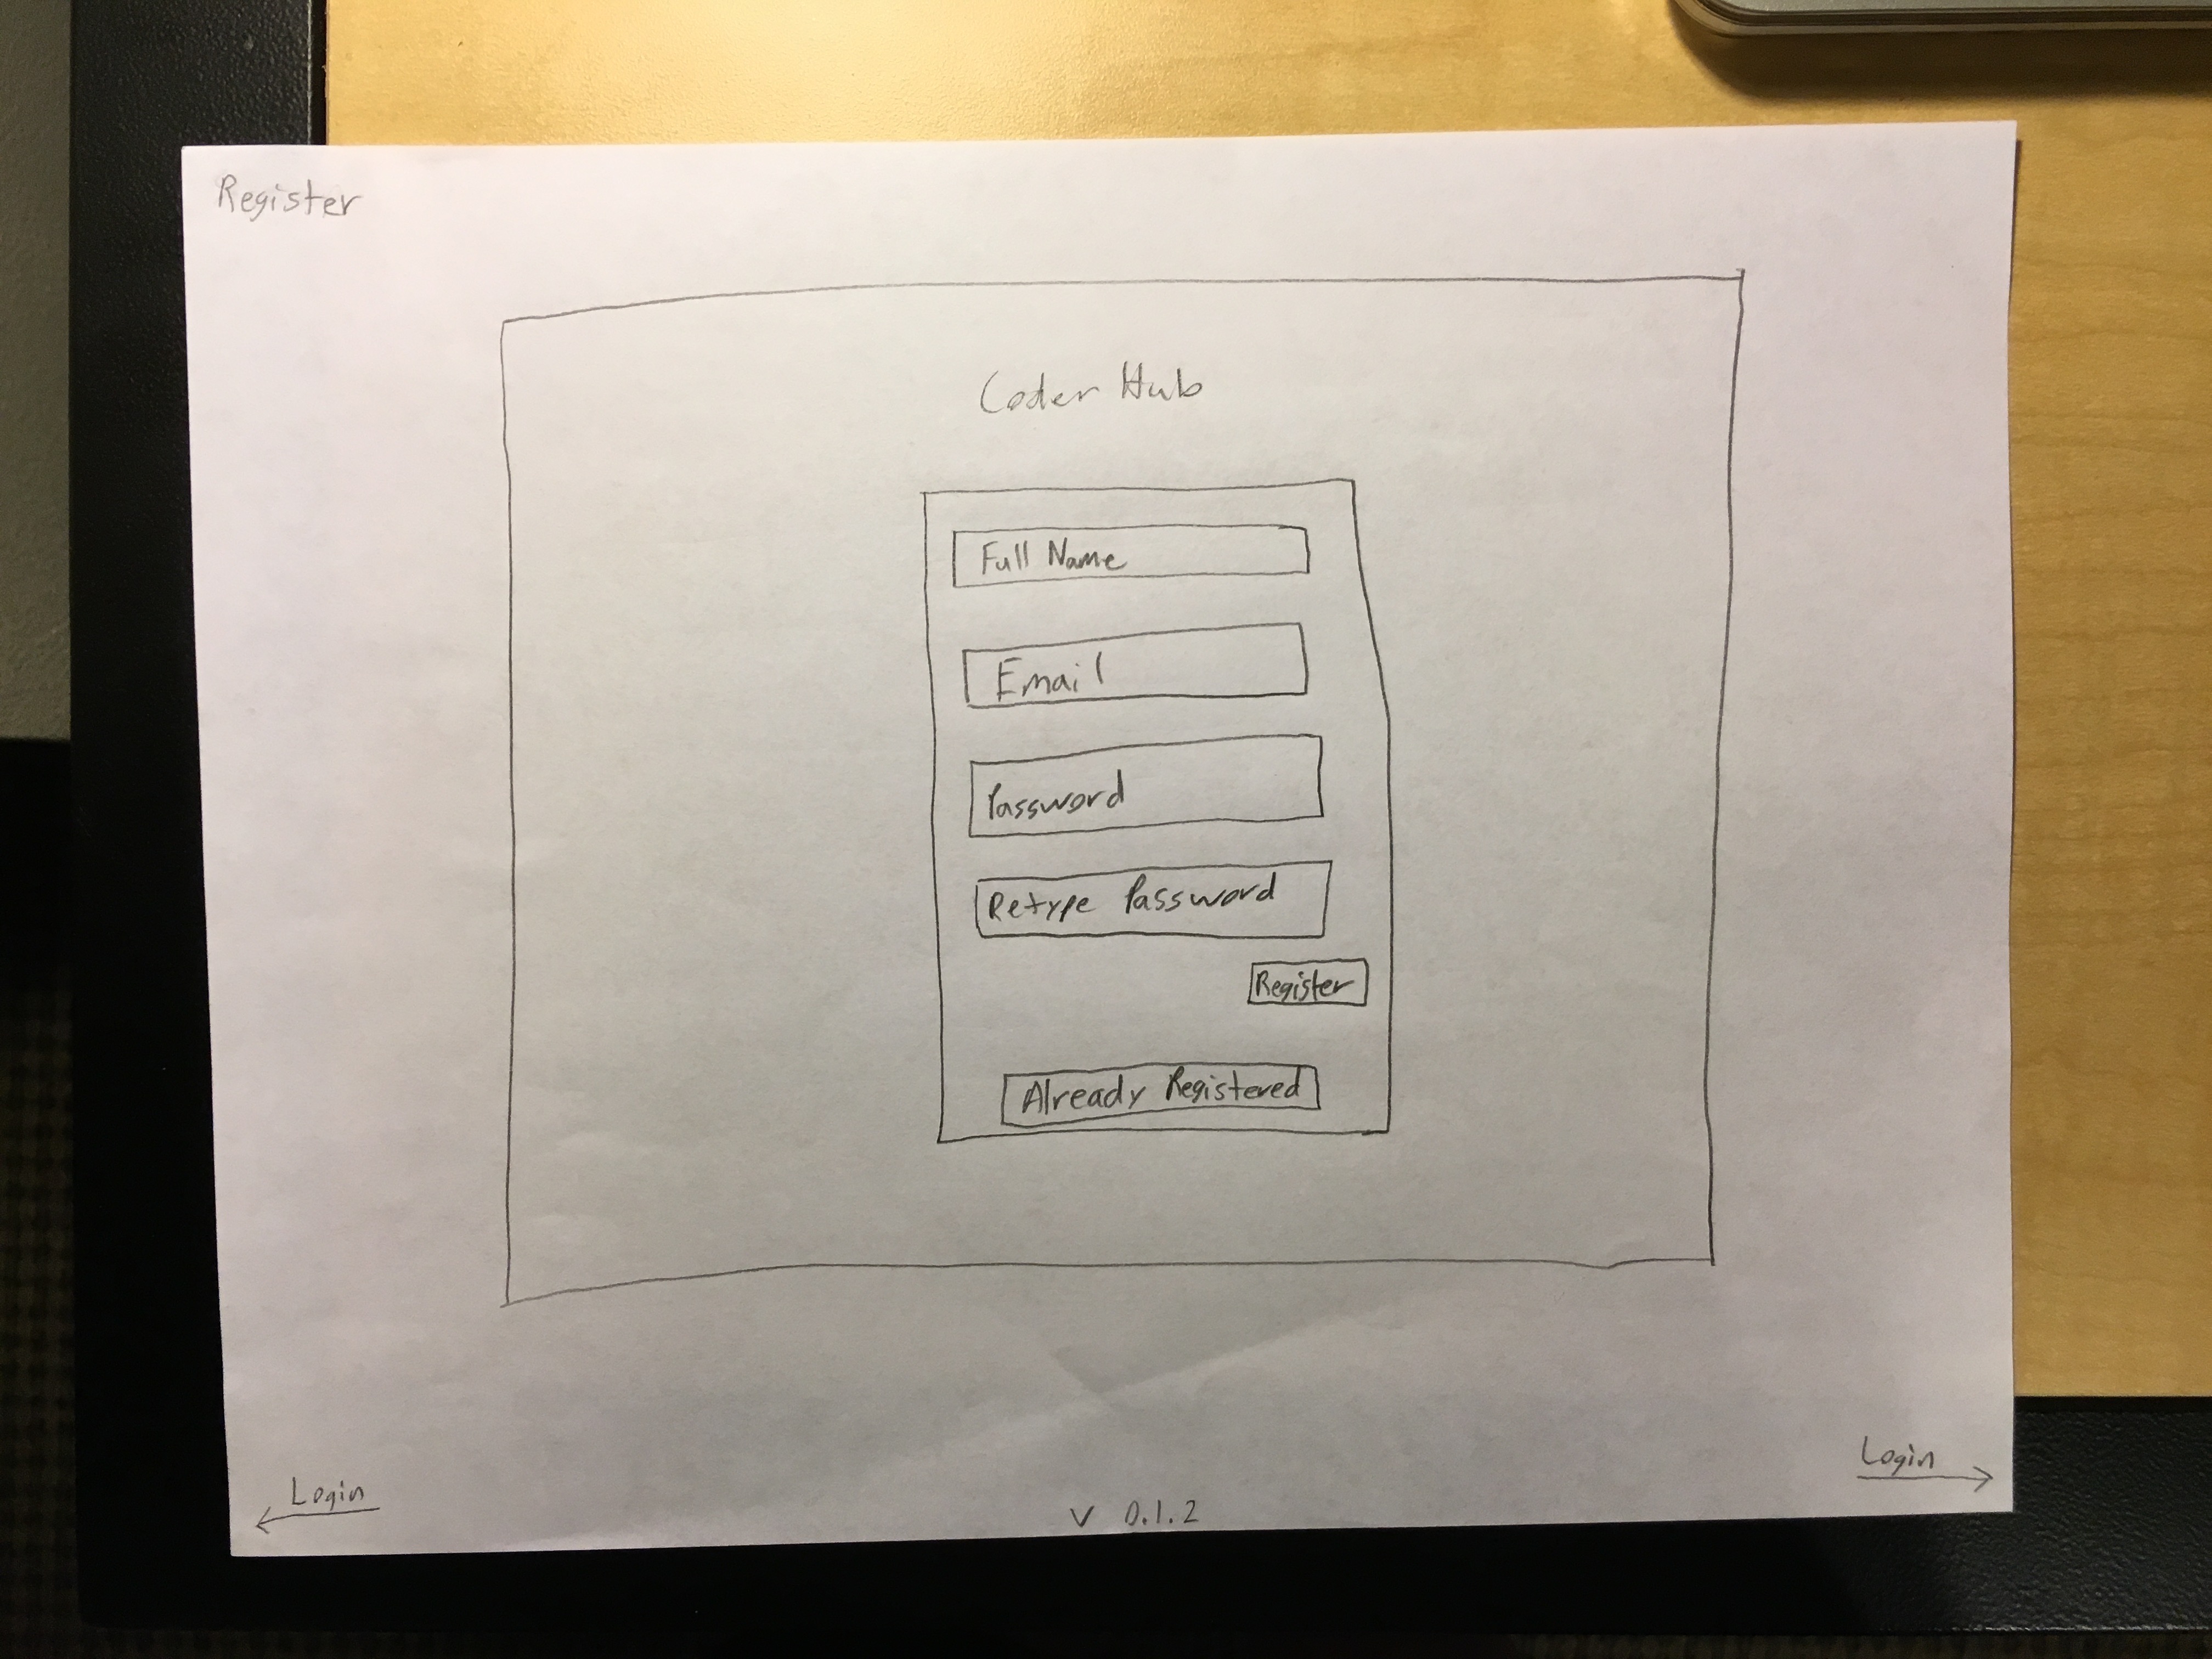 Register
Coder Hub
Full Name
Email
Password
Retype Password
Register
Already Registered
Login
v 0.1.2
Login